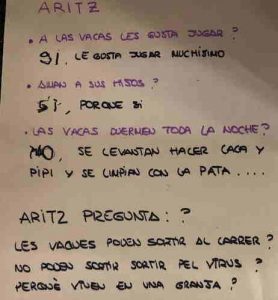 ARITZ
• A LAS VACAS LES GUSTA JUGAR?
SI, LE GOSTA JUGAR MUCHISIMO
• AMAN A SUS HIJOS?
SI, PORQUE SI
• LAS VACAS DUERMEN TODA LA NOCHE?
NO, SE LEVANTAN HACER CACA Y
PIPI Y SE LIMPIAN CON LA PATA ....
ARITZ PREGUNTA: ?
LES VAQUES PODEN SORTIR AL CARRER?
NO PODEN SORTIR SORTIR PEL VIRUS?
PERQUÈ VIVEN EN UNA GRANJA?